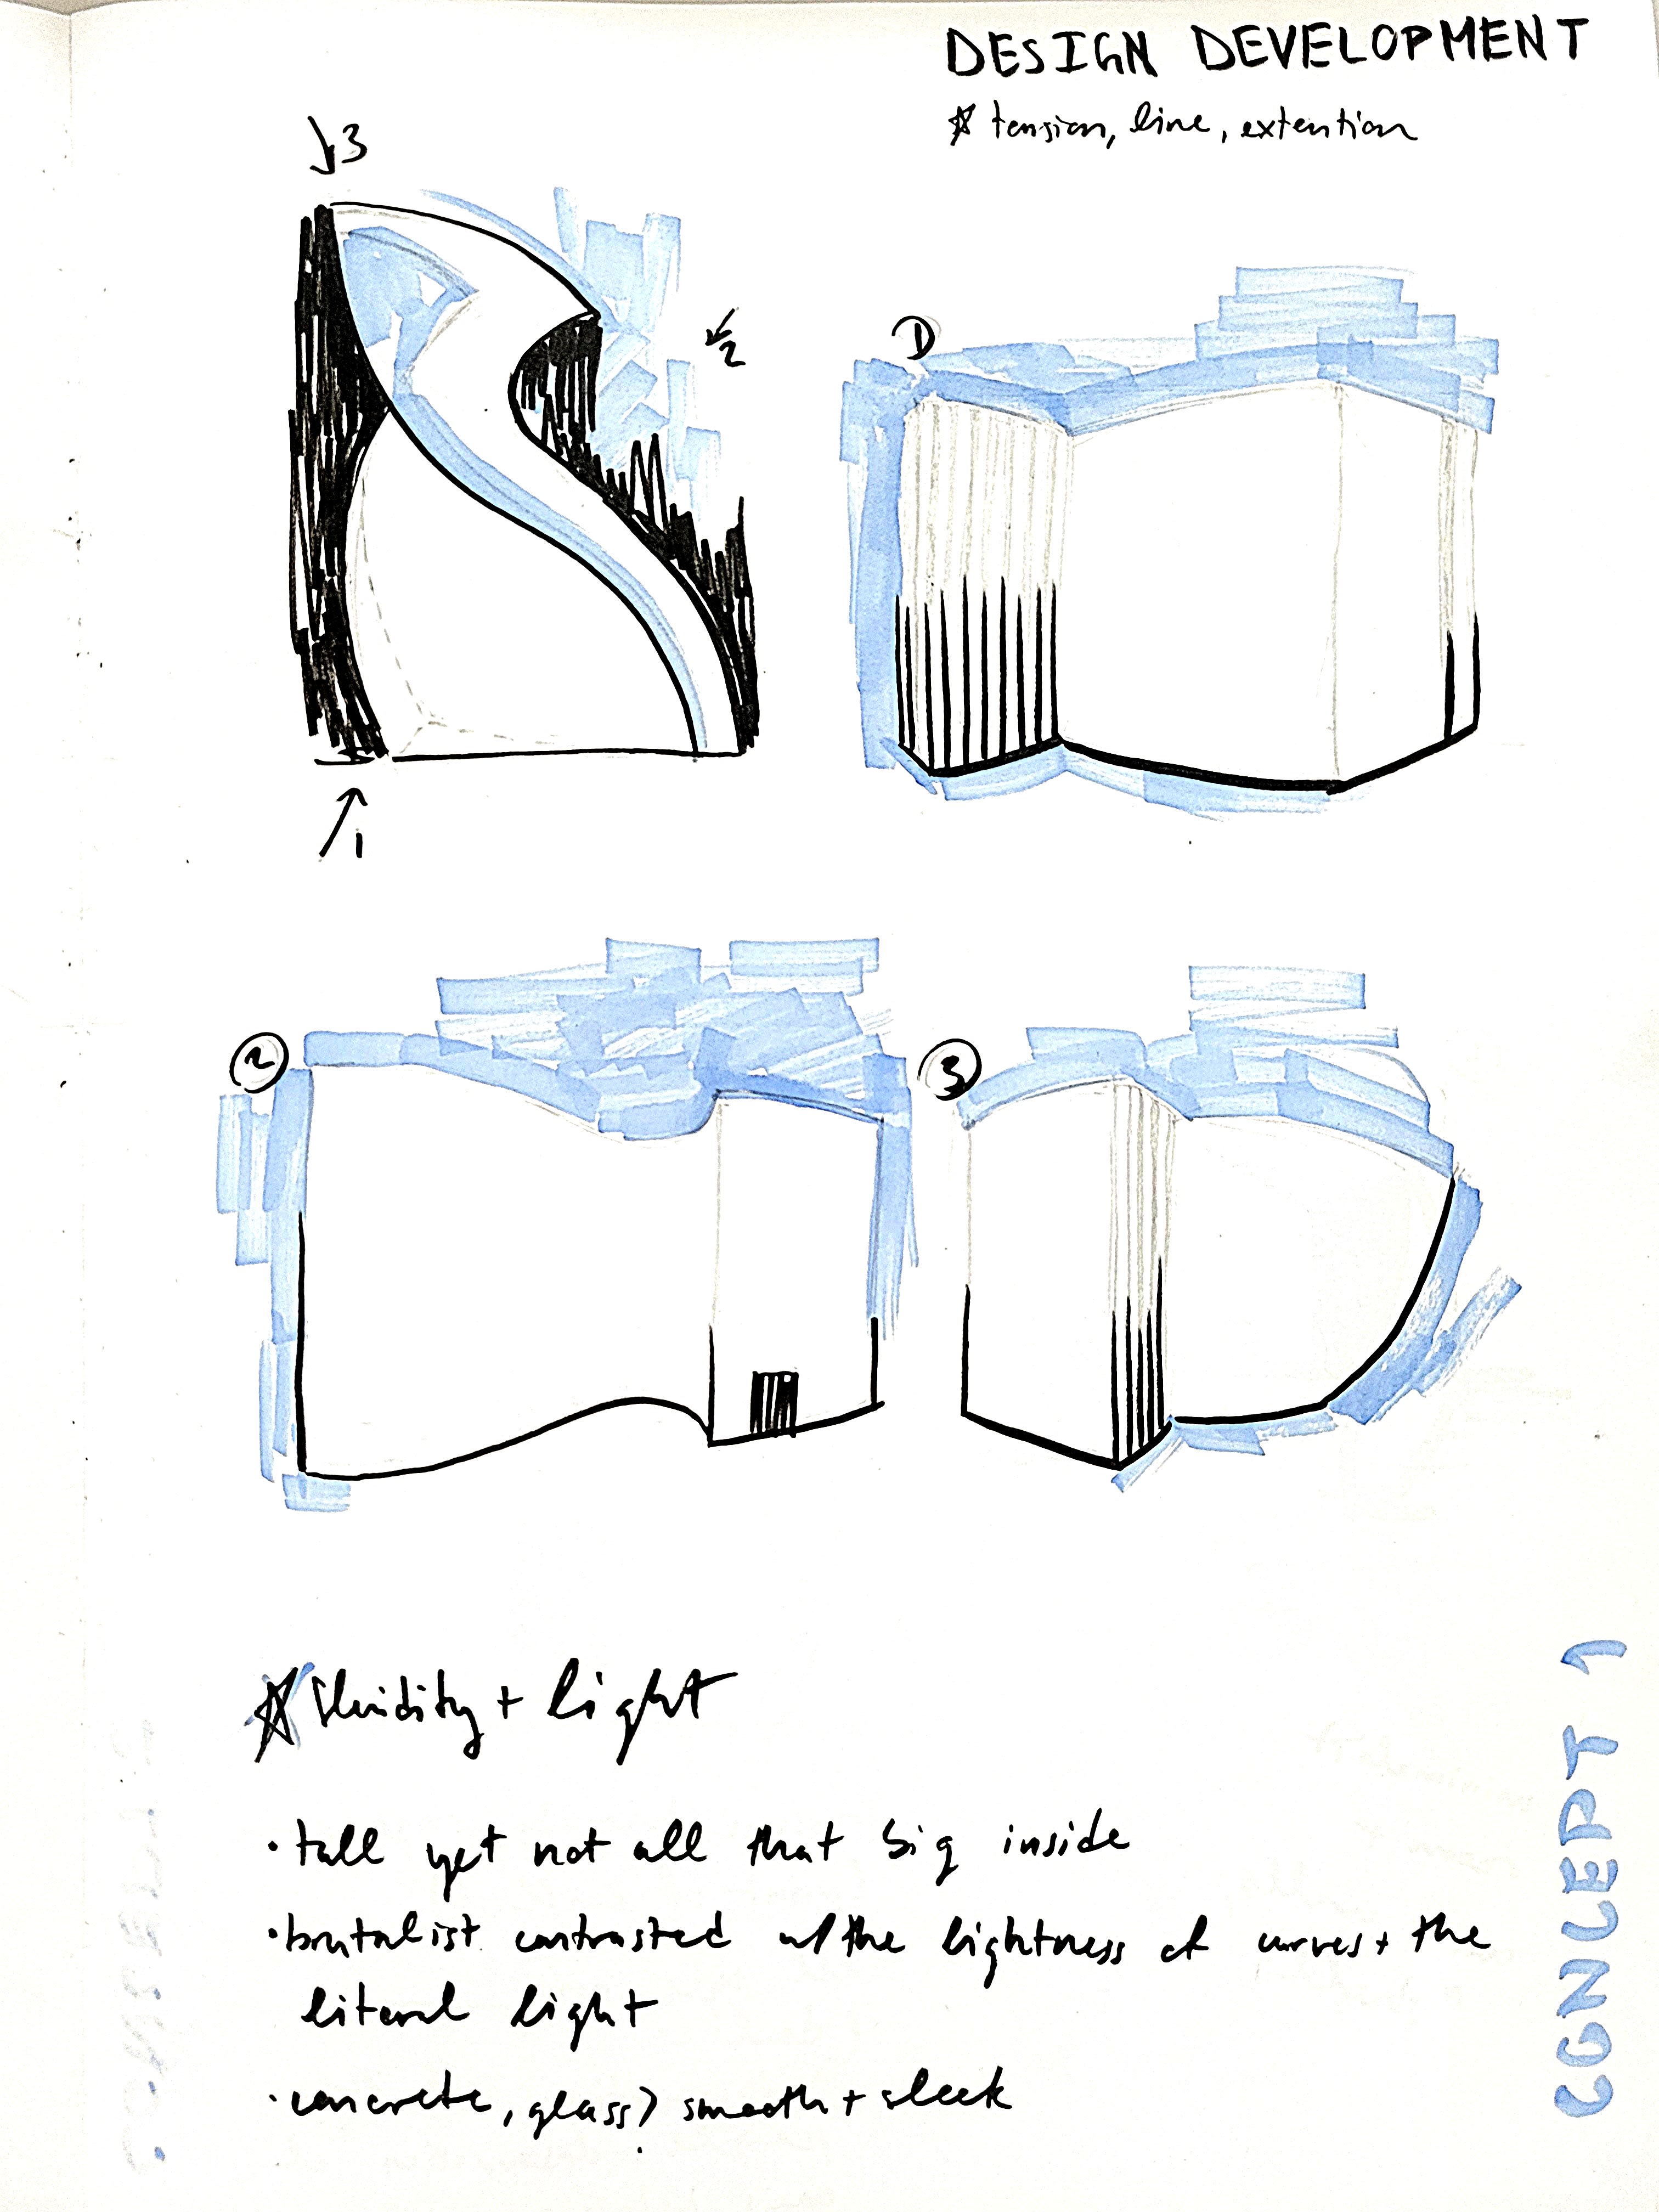 DESIGN DEVELOPMENT
☆ tension, line, extention
3
2
1
1
2
3
☆ fluidity + light
· tall yet not all that big inside
· brutalist contrasted w/ the lightness of curves + the
literal light
· concrete, glass > smooth + sleek
CONCEPT 1